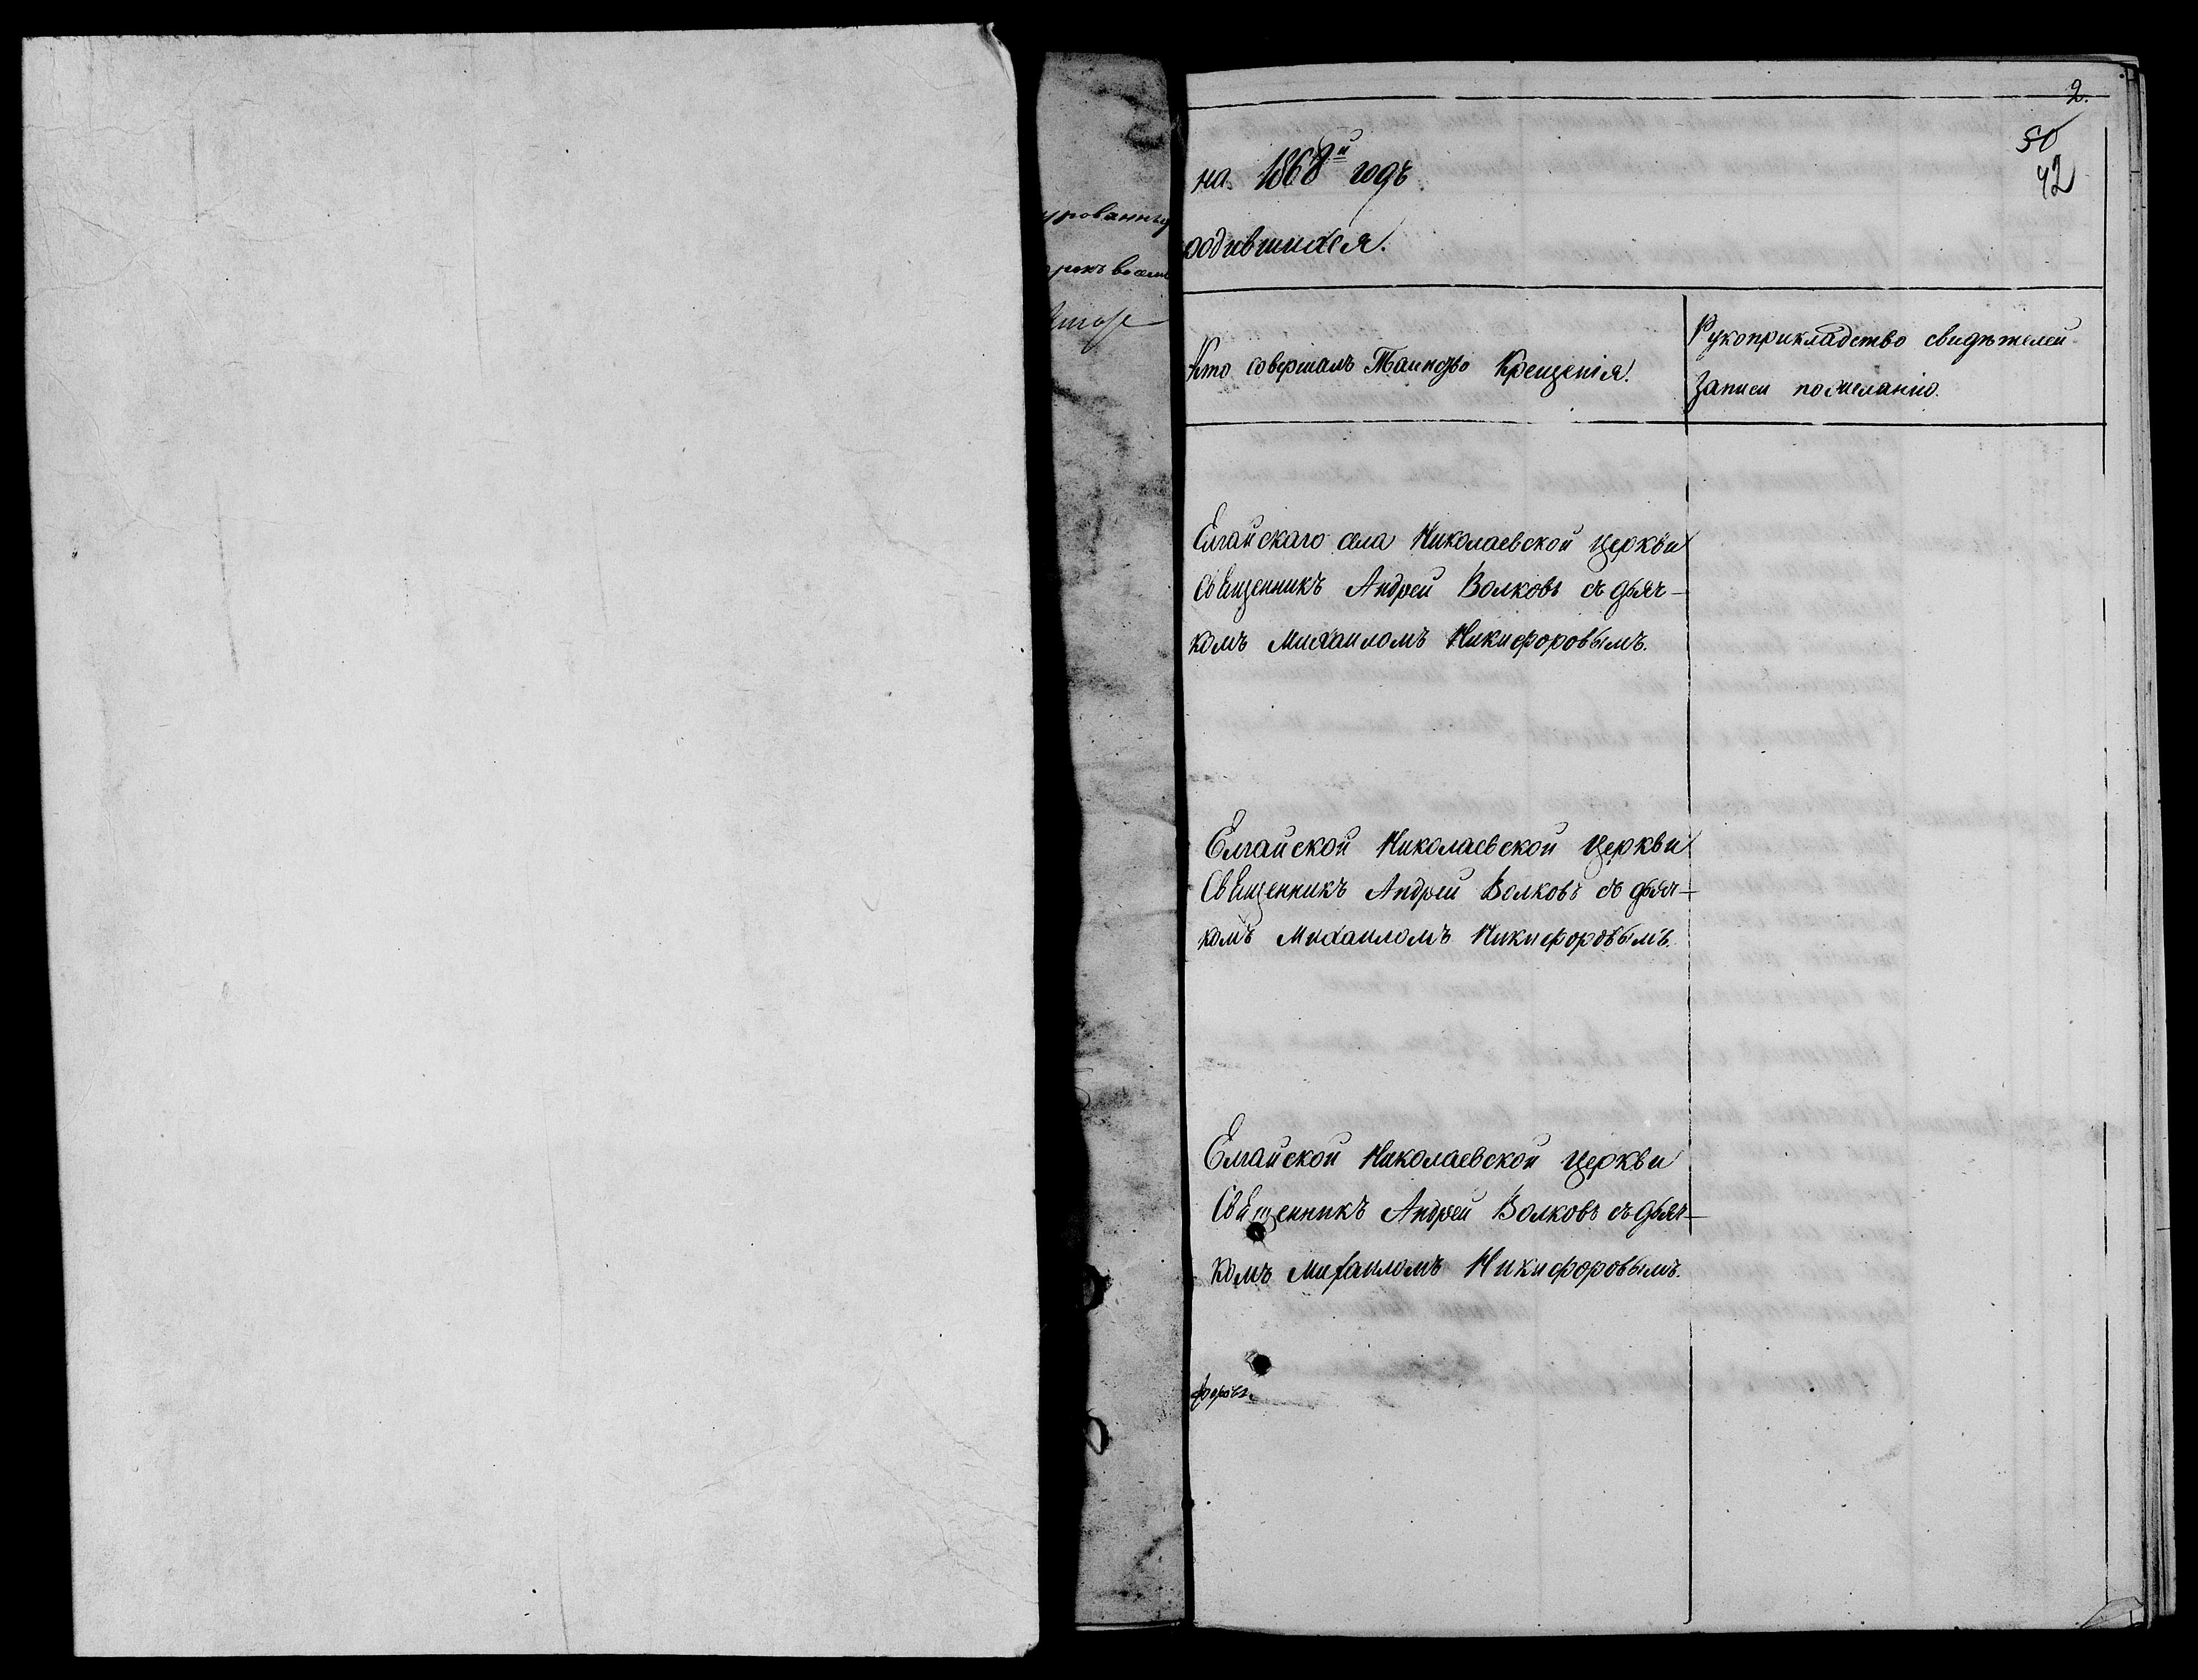 2.
50
42
на 1868й годъ
родившихся.
Кто совершалъ Таинство Крещенія.
Рукоприкладство свидѣтелей
записи по желанію.
Елгайскаго села Николаевской церкви
Священникъ Андрей Волковъ съ дьяч-
комъ Михаиломъ Никифоровымъ.
Елгайской Николаевской церкви
Священникъ Андрей Волковъ съ дьяч-
комъ Михаиломъ Никифоровымъ.
Елгайской Николаевской церкви
Священникъ Андрей Волковъ съ дьяч-
комъ Михаиломъ Никифоровымъ.
форовъ.